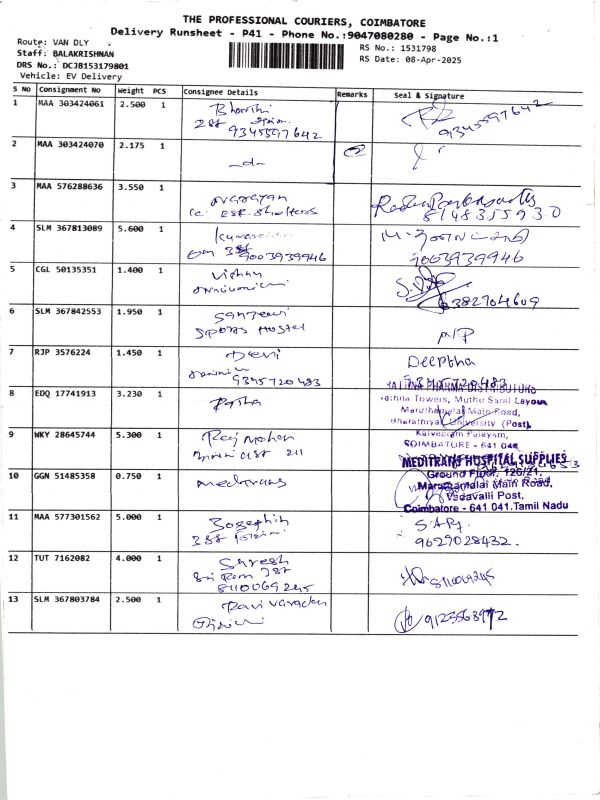 THE PROFESSIONAL COURIERS, COIMBATORE
Delivery Runsheet - P41 - Phone No.:9047080280 - Page No.:1
Route: VAN DLY
Staff: BALAKRISHNAN
DRS No.: DCJB153179801
Vehicle: EV Delivery
RS No.: 1531798
RS Date: 08-Apr-2025
S No Consignment No Weight PCS Consignee Details Remarks Seal & Signature
1 MAA 303424061 2.500 1
9345597642 9345597642
2 MAA 303424070 2.175 1 -d-
3 MAA 576288636 3.550 1 narayan
8148355930
4 SLM 367813089 5.600 1
9003939946 9003939946
5 CGL 50135351 1.400 1 Vishnu
6382704609
6 SLM 367842553 1.950 1 Sanjeevi
Sports Hostel
7 RJP 3576224 1.450 1 Devi Deeptha
9345720483 9345720483
8 EDQ 17741913 3.230 1
RATHNA PHARMA DISTRIBUTORS
Rathna Towers, Muthu Saral Layout,
Maruthamalai Main Road,
Bharathiyar University (Post),
Kalveeram Palayam,
COIMBATORE - 641 046
9 WKY 28645744 5.300 1 Raj Mohan
10 GGN 51485358 0.750 1 meditrans
MEDITRANS HOSPITAL SUPPLIES
Ground Floor, 126/21,
Maruthamalai Main Road,
Vadavalli Post,
Coimbatore - 641 041.Tamil Nadu
11 MAA 577301562 5.000 1
9629028432
12 TUT 7162082 4.000 1 Suresh
Sri Ram
8110069245 8110069245
13 SLM 367803784 2.500 1 Ravi Varadan